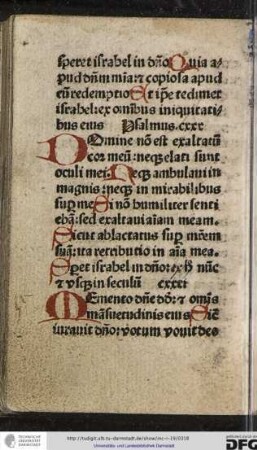 speret israhel in dño Quia a⸗
pud dñm mia: ⁊ copiosa apud
eū redemptio Et ipe redimet
israhel: ex omĩbus iniquitati⸗
bus eius Psalmus. cxxx
Domine nõ est exaltatũ
cor meũ: neqꝫ elati sunt
oculi mei. Neqꝫ ambulaui in
magnis: neqꝫ in mirabilibus
sup me Si nõ humiliter senti
ebã: sed exaltaui aĩam meam.
Sicut ablactatus sup mrẽm
suã: ita retributio in aĩa mea.
Speret israhel in dño: ex h̾ nũc
⁊ vsqꝫ in seculũ cxxxi
Memento dñe dd: ⁊ omĩs
mãsuetudinis eius Sic
iurauit dño: votum vouit deo
http://tudigit.ulb.tu-darmstadt.de/show/inc-i-19/0318
Universitäts- und Landesbibliothek Darmstadt
DFG